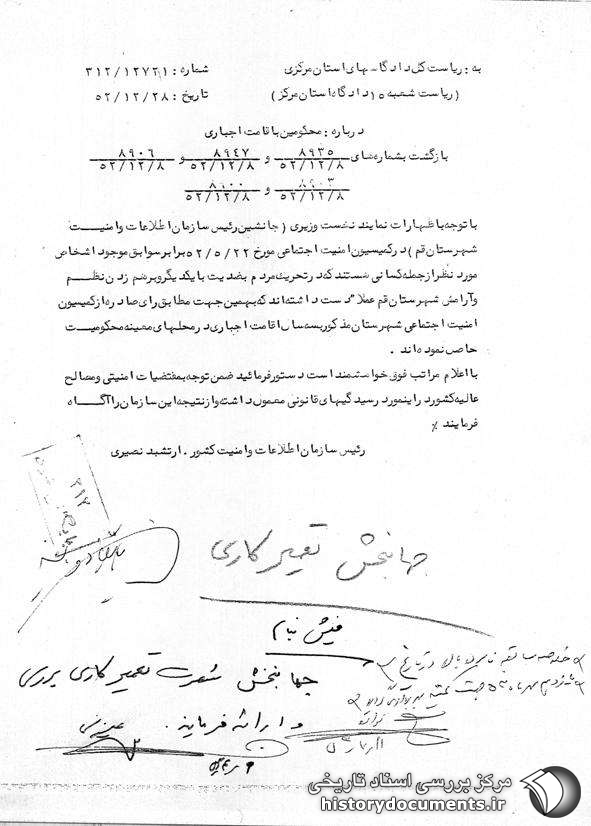 به : ریاست کل دادگاههای استان مرکزی
شماره : ۳۱۲/۱۲۷۲۱
(ریاست شعبه ۱۰ دادگاه استان مرکز)
تاریخ : ۵۲/۱۲/۲۸
درباره : محکومین باقامت اجباری
بازگشت بشماره‌های ۸۹۳۵ و ۸۹۴۷ و ۸۹۰۶
۵۲/۱۲/۸ ۵۲/۱۲/۸ ۵۲/۱۲/۸
۸۹۰۳ و ۸۱۰۰
۵۲/۱۲/۸ ۵۲/۱۲/۸
با توجه باظهارات نماینده نخست وزیری (جانشین رئیس سازمان اطلاعات و امنیت
شهرستان قم) در کمیسیون امنیت اجتماعی مورخ ۵۲/۵/۲۲ برابر سوابق موجود اشخاص
مورد نظر از جمله کسانی هستند که در تحریک مردم بضدیت با یکدیگر و برهم زدن نظم
و آرامش شهرستان قم عملاً دست داشته‌اند که بهمین جهت مطابق رای صادره از کمیسیون
امنیت اجتماعی شهرستان مذکور بسه سال اقامت اجباری در محلهای معینه محکومیت
حاصل نموده‌اند .
با اعلام مراتب فوق خواهشمند است دستور فرمائید ضمن توجه بمقتضیات امنیتی و مصالح
عالیه کشور در اینمورد رسیدگیهای قانونی معمول داشته و از نتیجه این سازمان را آگاه
فرمایند ٪
رئیس سازمان اطلاعات و امنیت کشور . ارتشبد نصیری
۳۱۲
جهانبخش تعمیرکاری
فیش بنام
جهانبخش شهرت تعمیرکاری بررسی
و ارائه فرمایید .
مرکز بررسی اسناد تاریخی
historydocuments.ir